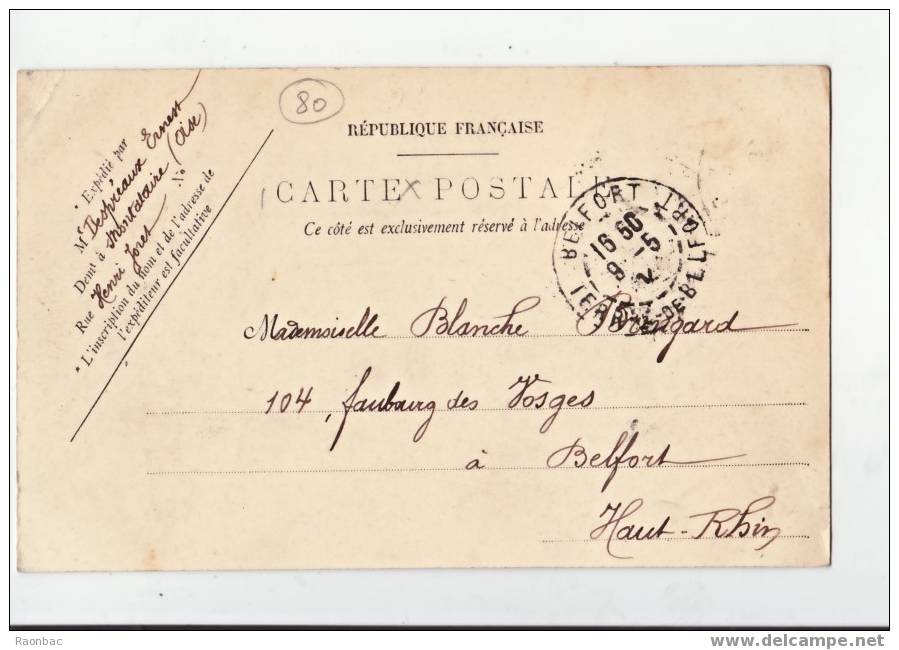 80
RÉPUBLIQUE FRANÇAISE
CARTE POSTALE
Ce côté est exclusivement réservé à l'adresse
* Expédié par
Mr Despréaux Ernest
Demt à Montataire (Oise)
Rue Henri Joret No
* L'inscription du nom et de l'adresse de
l'expéditeur est facultative
BELFORT
16 50
9 - 5
Mademoiselle Blanche
104, faubourg des Vosges
à Belfort
Haut-Rhin
Raonbac
www.delcampe.net